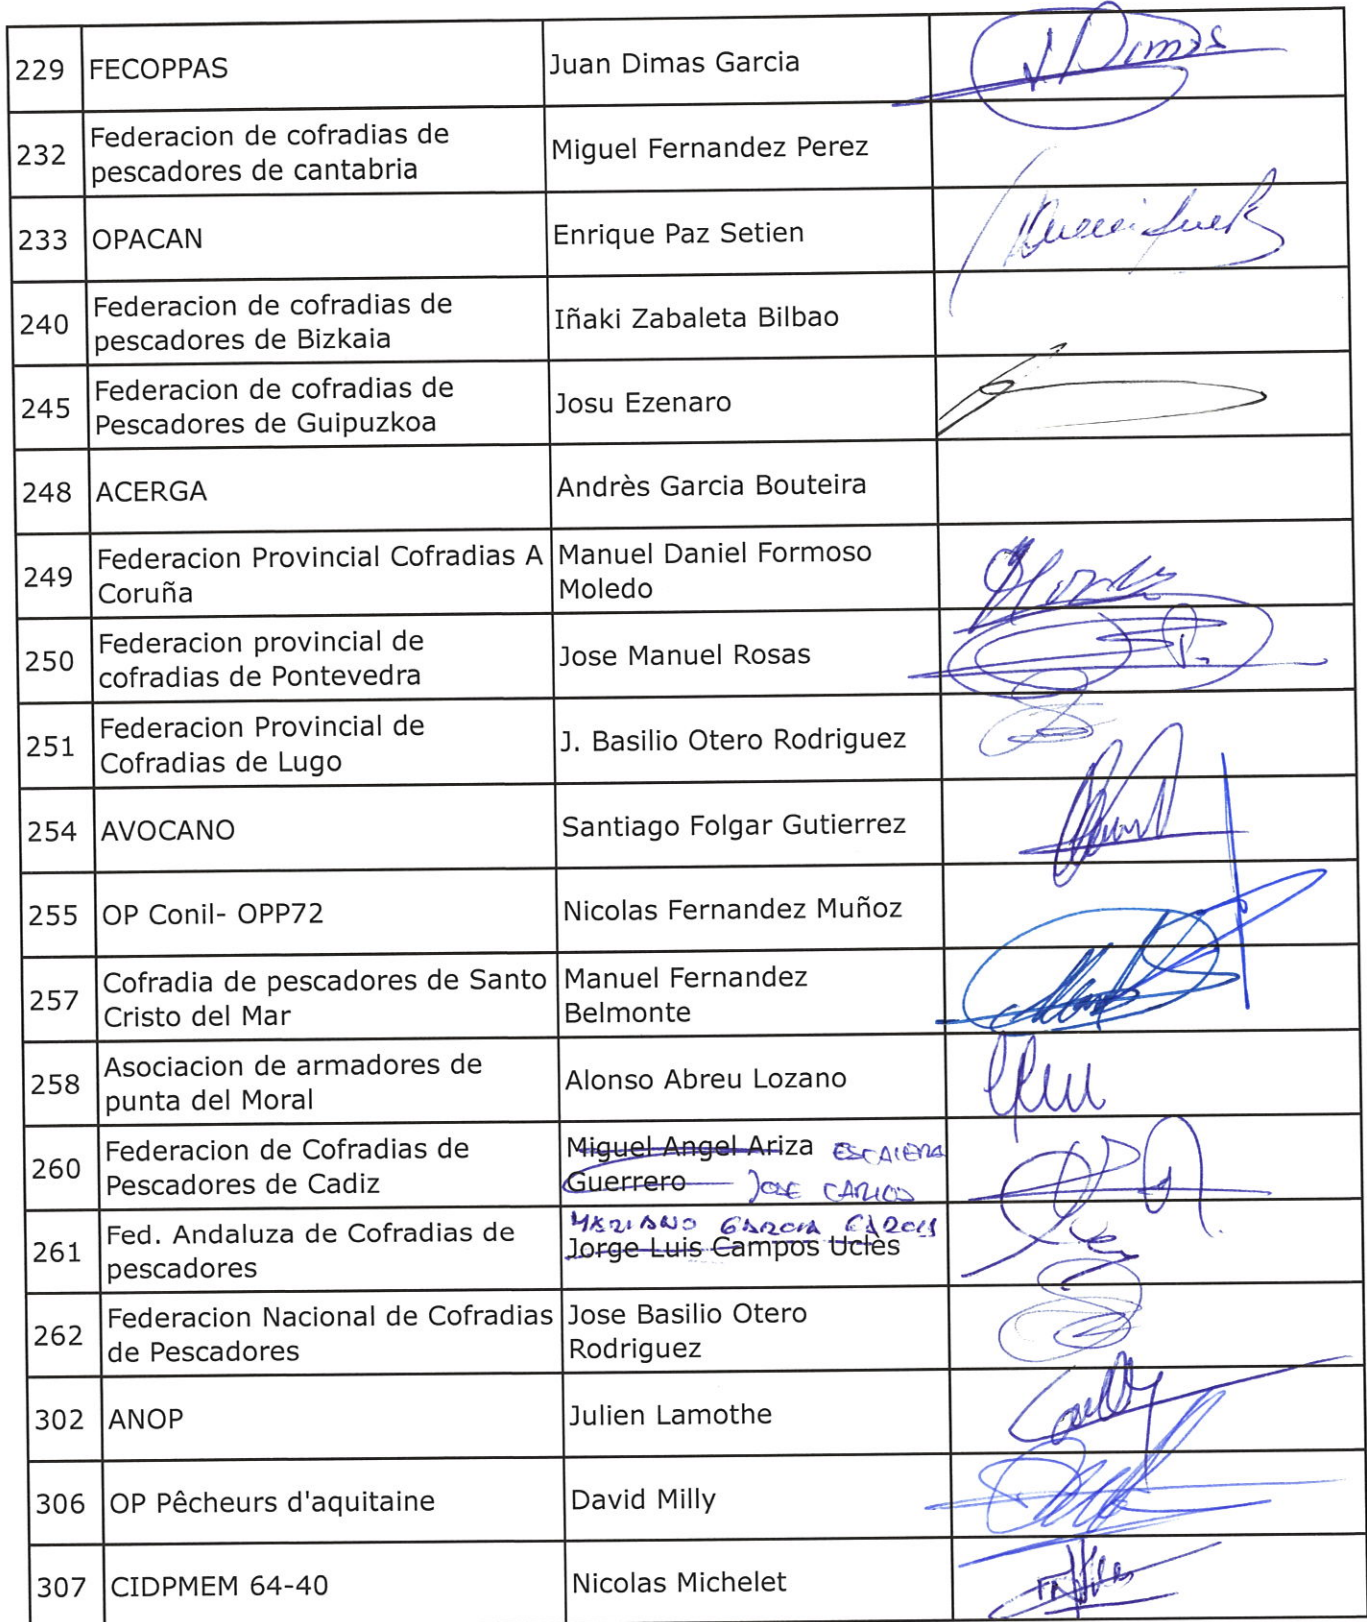 229 FECOPPAS Juan Dimas Garcia J Dimas
232 Federacion de cofradias de
pescadores de cantabria Miguel Fernandez Perez
233 OPACAN Enrique Paz Setien
240 Federacion de cofradias de
pescadores de Bizkaia Iñaki Zabaleta Bilbao
245 Federacion de cofradias de
Pescadores de Guipuzkoa Josu Ezenaro
248 ACERGA Andrès Garcia Bouteira
249 Federacion Provincial Cofradias A
Coruña Manuel Daniel Formoso
Moledo
250 Federacion provincial de
cofradias de Pontevedra Jose Manuel Rosas
251 Federacion Provincial de
Cofradias de Lugo J. Basilio Otero Rodriguez
254 AVOCANO Santiago Folgar Gutierrez
255 OP Conil- OPP72 Nicolas Fernandez Muñoz
257 Cofradia de pescadores de Santo
Cristo del Mar Manuel Fernandez
Belmonte
258 Asociacion de armadores de
punta del Moral Alonso Abreu Lozano
260 Federacion de Cofradias de
Pescadores de Cadiz Miguel Angel Ariza ESCALERA
Guerrero JOSE CARLOS
261 Fed. Andaluza de Cofradias de
pescadores MARIANO GARCIA GARCIA
Jorge Luis Campos Uclès
262 Federacion Nacional de Cofradias
de Pescadores Jose Basilio Otero
Rodriguez
302 ANOP Julien Lamothe
306 OP Pêcheurs d'aquitaine David Milly
307 CIDPMEM 64-40 Nicolas Michelet